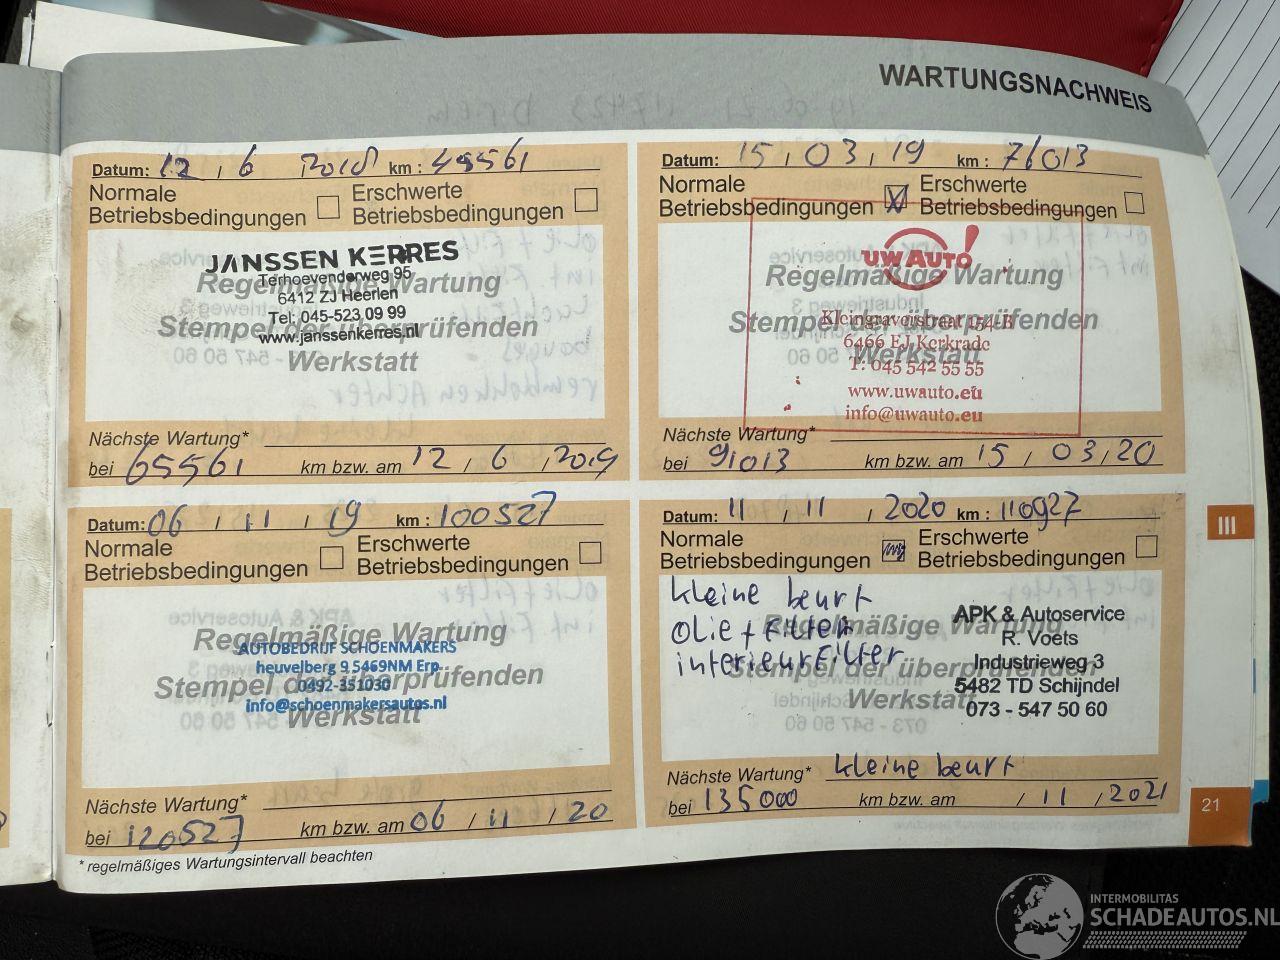 WARTUNGSNACHWEIS
Datum: 12 , 6 2018 km : 45561
Normale Betriebsbedingungen
Erschwerte Betriebsbedingungen
JANSSEN KERRES
Terhoevenderweg 95
Regelmäßige Wartung
6412 ZJ Heerlen
Tel: 045-523 09 99
Stempel der überprüfenden
www.janssenkerres.nl
Werkstatt
Nächste Wartung*
bei 65561 km bzw. am 12 / 6 , 2019
Datum: 15 , 03 , 19 km : 76013
Normale Betriebsbedingungen
Erschwerte Betriebsbedingungen
UW AUTO!
Regelmäßige Wartung
Kleingraverstraat 154-B
Stempel der überprüfenden
6466 EJ Kerkrade
Werkstatt
T: 045 542 55 55
www.uwauto.eu
info@uwauto.eu
Nächste Wartung*
bei 91013 km bzw. am 15 / 03 , 20
Datum: 06 / 11 / 19 km : 100527
Normale Betriebsbedingungen
Erschwerte Betriebsbedingungen
Regelmäßige Wartung
AUTOBEDRIJF SCHOENMAKERS
heuvelberg 9 5469NM Erp
Stempel der überprüfenden
0492-351030
info@schoenmakersautos.nl
Werkstatt
Nächste Wartung*
bei 120527 km bzw. am 06 / 11 / 20
* regelmäßiges Wartungsintervall beachten
Datum: 11 , 11 , 2020 km : 110927
Normale Betriebsbedingungen
Erschwerte Betriebsbedingungen
kleine beurt
olie + Filter
interieurFilter
Regelmäßige Wartung
Stempel der überprüfenden
Werkstatt
APK & Autoservice
R. Voets
Industrieweg 3
5482 TD Schijndel
073 - 547 50 60
Nächste Wartung* kleine beurt
bei 135000 km bzw. am / 11 , 2021
III
21
INTERMOBILITAS
SCHADEAUTOS.NL